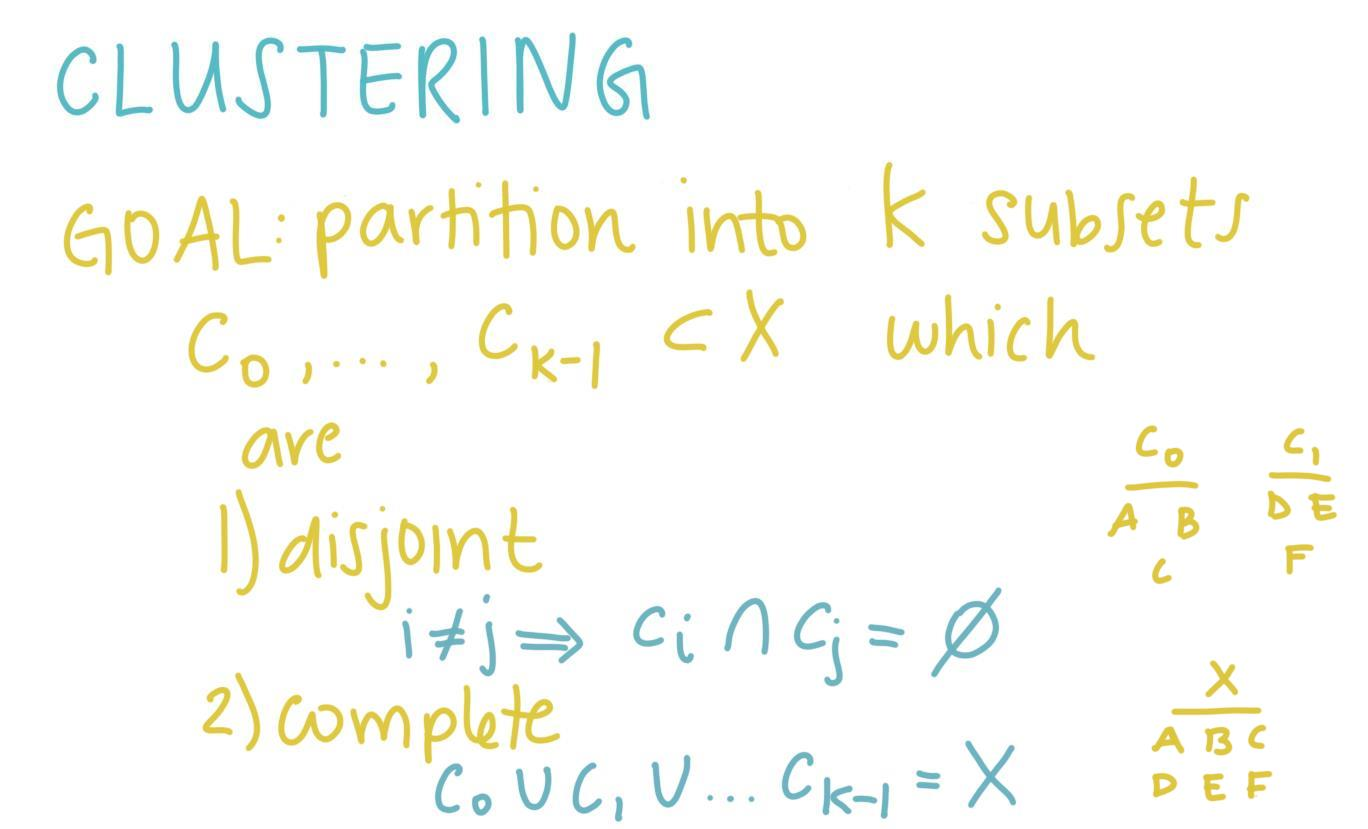 CLUSTERING
GOAL: partition into k subsets
C₀, ..., Cₖ₋₁ ⊂ X which
are
1) disjoint
i ≠ j ⇒ Cᵢ ∩ Cⱼ = ∅
2) complete
C₀ ∪ C₁ ∪ ... Cₖ₋₁ = X
C₀ C₁
A B D E
C F
X
A B C
D E F